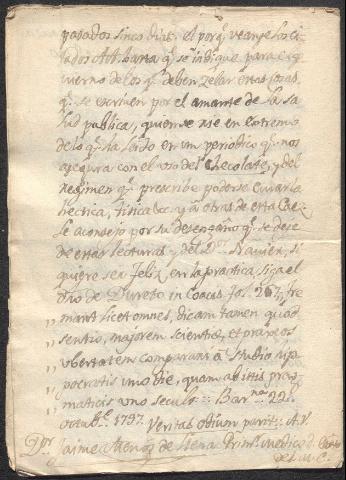 pasados sinco dias. el porq.e veanse los ci-
tados A A. hasta q.e se indique para el
govierno de los q.e deben zelar estas cosas,
q.e se escriven por el amante de la Sa-
lud publica, quien se rie en extremo
de lo q.e ha leido en un periodico q.e nos
asegura con el uso del Checolate, y del
Regimen q.e prescribe poderse curar la
hectica, tisica &c. y a otras de esta Cla-
se aconsejo por su desengaño q.e se dexe
de estas lecturas y del D.r Navier, si
quiere ser feliz en la practica siga el
de Dureto in Coacas fol. 267, fre-
mant licet omnes, dicam tamen quod
sentio, majorem scientiæ, et praxeos
ubertatem comparans a Studio Hip-
pocratis uno die, quam ab istis prag-
maticis uno seculo :: Bar.na 22
octub.e 1797. Veritas odium parit: A. V.
D.or Jaime Menos de Llena Prim.r medico d.